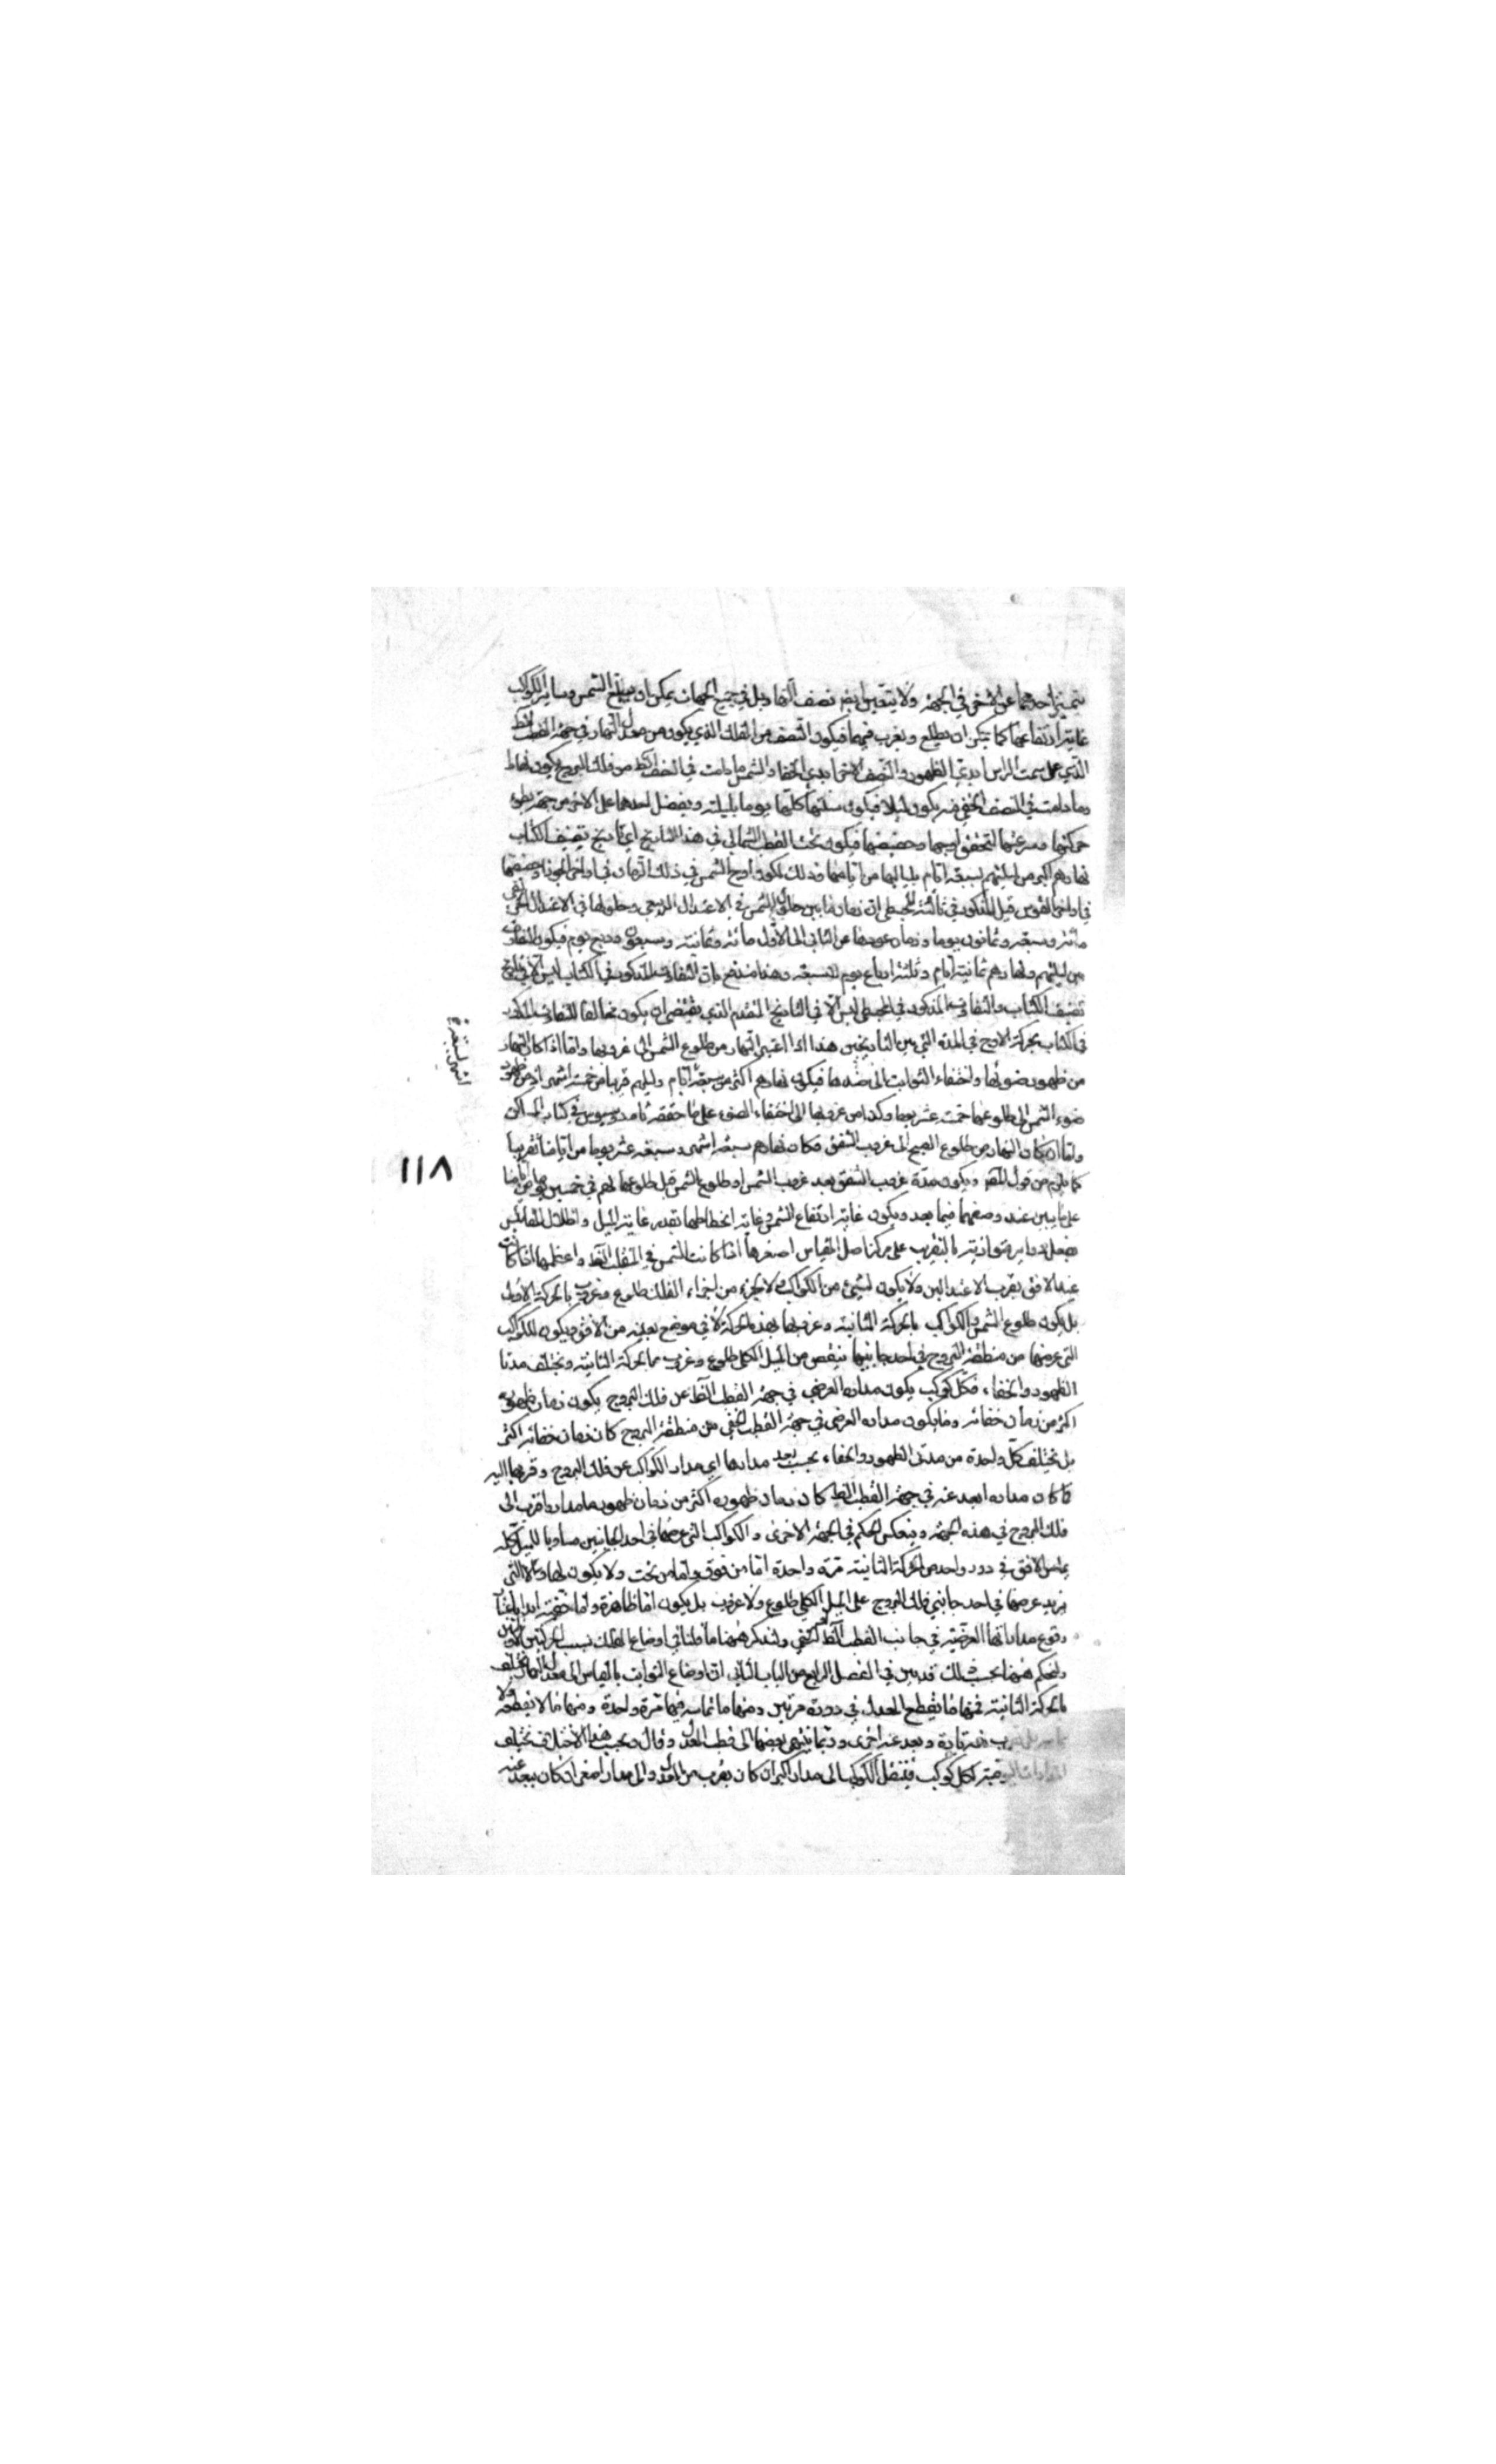 يتميز احدهما عن الاخرى في الجهة ولا يتعين ايضا نصف النهار بل في جميع الجهات يمكن ان يبلغ الشمس وساير الكواكب
غاية ارتفاعها كما يمكن ان يطلع ويغرب فيها فيكون النصف من الفلك الذي يكون من معدل النهار في جهة القطب
الذي على سمت الراس ابدي الظهور والنصف الاخر ابدي الخفاء والشمس ما دامت في النصف الظ من فلك البروج يكون نهارا
وما دامت في النصف الخفي منه يكون ليلا فيكون سنتها كلها يوما بليلته ويفضل احدهما على الاخر من جهة بطوء
حركتها وسرعتها لتحقق اوجها وحضيضها فيكون تحت القطب الشمالي في هذا التاريخ اي تاريخ تصنيف الكتاب
نهارهم اكبر من ليلتهم بسبعة ايام بلياليها من ايامنا وذلك لكون اوج الشمس في ذلك الزمان في اواخر الجوزاء وحضيضها
في اواخر القوس قيل المذكور في ثالثة المجسطي ان زمان ما بين حلول الشمس في الاعتدال الربيعي وحلولها في الاعتدال الخريفي
مائة وسبعة وثمانون يوما وزمان عودها عن الثاني الى الاول مائة وثمانية وسبعون وربع يوم فيكون التفاوت
بين ليلتهم ونهارهم ثمانية ايام وثلثة ارباع يوم لا سبعة وهذا مندفع بان التفاوت المذكور في الكتاب ليس الا في تاريخ
تصنيف الكتاب والتفاوت المذكور في المجسطي ليس الا في التاريخ المتقدم الذي يقتضي ان يكون مخالفا للتفاوت المذكور
في الكتاب بحركة الاوج في المدة التي بين التاريخين هذا اذا اعتبر النهار من طلوع الشمس الى غروبها واما اذا كان النهار
من ظهور ضوئها واختفاء الثوابت الى ضدهما فيكون نهارهم اكثر من سبعة ايام وليلهم قريبا من خمسة اشهر اذ من ظهور
ضوء الشمس الى طلوعها خمسة عشر يوما وكذا من غروبها الى اختفاء الضوء على ما حققه ثاوذوسيوس في كتاب المساكن
واما ان كان النهار من طلوع الصبح الى غروب الشفق فكان نهارهم سبعة اشهر وسبعة عشر يوما من ايامنا تقريبا
كما يلزم من قول المص ويكون مدة غروب الشفق بعد غروب الشمس او طلوع الشمس قبل طلوعها لهم في خمسين يوما من ايامنا
على ما يبين عند وصفهما فيما بعد ويكون غاية ارتفاع الشمس وغاية انحطاطها بقدر غاية الميل واظلال المقاييس
يفعل دواير متوازية بالتقريب على مركز اصل المقياس اصغرها اذا كانت الشمس في المنقلب الظ واعظمها اذا كانت
عند الافق بقرب الاعتدالين ولا يكون لشيء من الكواكب ولا لجزء من اجزاء الفلك طلوع وغروب بالحركة الاولى
بل يكون طلوع الشمس والكواكب بالحركة الثانية وغروبها بهذه الحركة لا في موضع بعينه من الافق ويكون للكواكب
التي عرضها من منطقة البروج في احد جانبيها ينقص من الميل الكلي طلوع وغروب بالحركة الثانية ويختلف مدتا
الظهور والخفاء فكل كوكب يكون مداره العرضي في جهة القطب الظ عن فلك البروج يكون زمان ظهوره
اكثر من زمان خفائه وما يكون مداره العرضي في جهة القطب الخفي من منطقة البروج كان زمان خفائه اكثر
بل يختلف كل واحدة من مدتي الظهور والخفاء بحسب بعد مدارها اي مدار الكواكب عن فلك البروج وقربها اليه
فما كان مداره ابعد عنه في جهة القطب الظ كان زمان ظهوره اكثر من زمان ظهور ما مداره اقرب الى
فلك البروج في هذه الجهة وينعكس الحكم في الجهة الاخرى والكواكب التي عرضها في احد الجانبين مساويا للميل كله
يماس الافق في دور واحد من الحركة الثانية مرة واحدة اما من فوق واما من تحت ولا يكون لها ولا التي
يزيد عرضها في احد جانبي فلك البروج على الميل الكلي طلوع ولا غروب بل يكون اما ظاهرة واما خفية ابدا
وقوع مداراتها العرضية في جانب القطب الظ او الخفي ولنذكر ههنا ما قلنا في اوضاع الفلك بسبب الحركتين
ولنحكم ههنا بحسب ذلك قد بين في الفصل الرابع من الباب الثاني ان اوضاع الثوابت بالقياس الى معدل النهار يختلف
بالحركة الثانية فمنها ما يقطع المعدل في دورة مرتين ومنها ما تماسه فيها مرة واحدة ومنها ما لا يقطعه ولا
يماسه بل يقرب منه تارة ويبعد عنه اخرى وربما ينتهي بعضها الى قطب المعدل وقال وبحسب هذا الاختلاف يختلف
المدارات اليومية لكل كوكب فينتقل الكوكب الى مدار اكبر ان كان يقرب من المعدل والى مدار اصغر ان كان يبعد عنه
١١٨